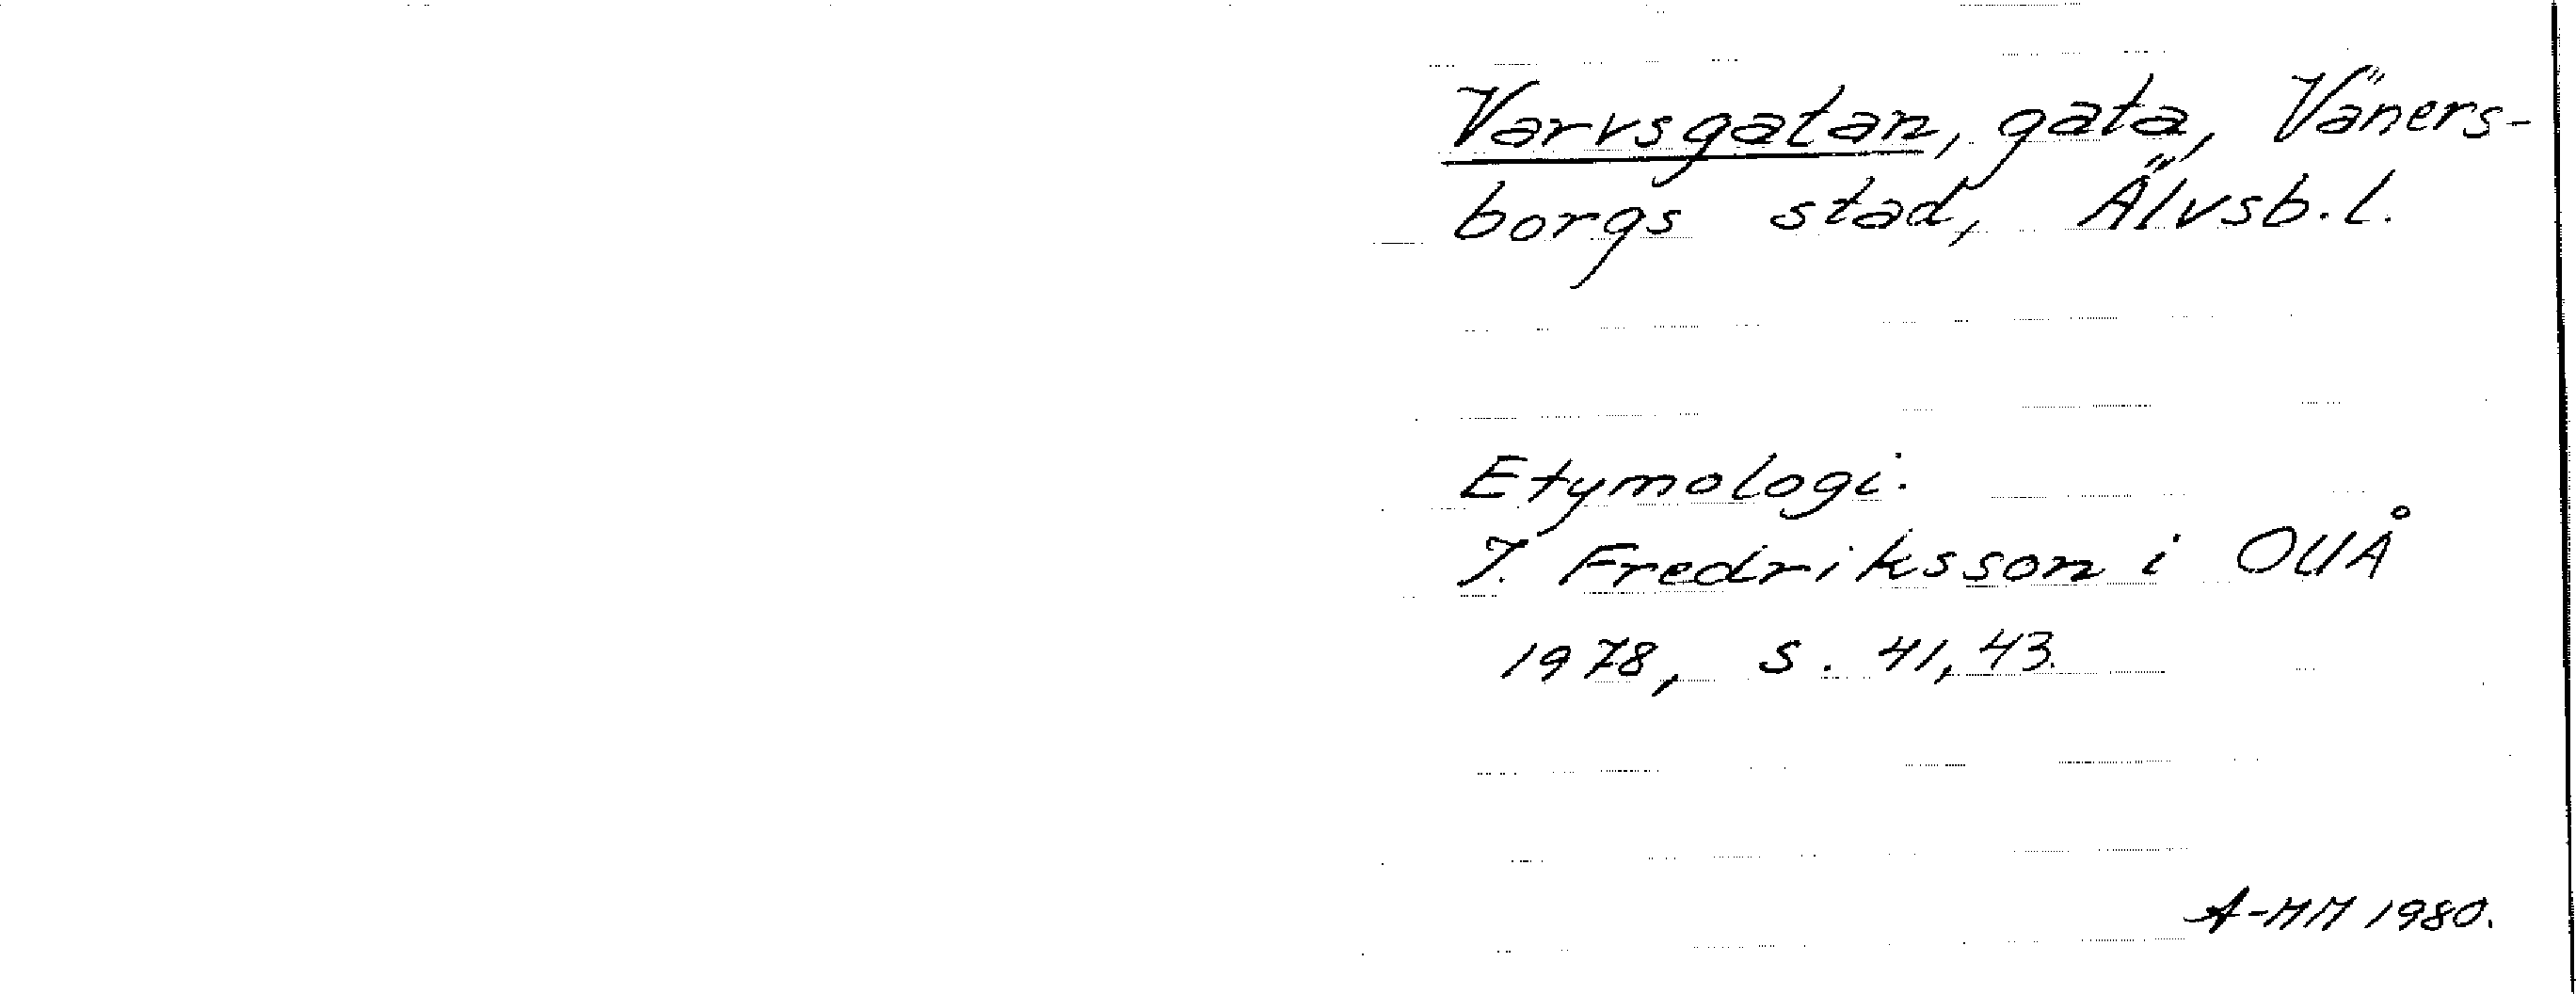 Varvsgatan, gata, Väners-
borgs stad, Älvsb. l.
Etymologi:
I. Fredriksson i OUÅ
1978, s. 41, 43.
A-MM 1980.